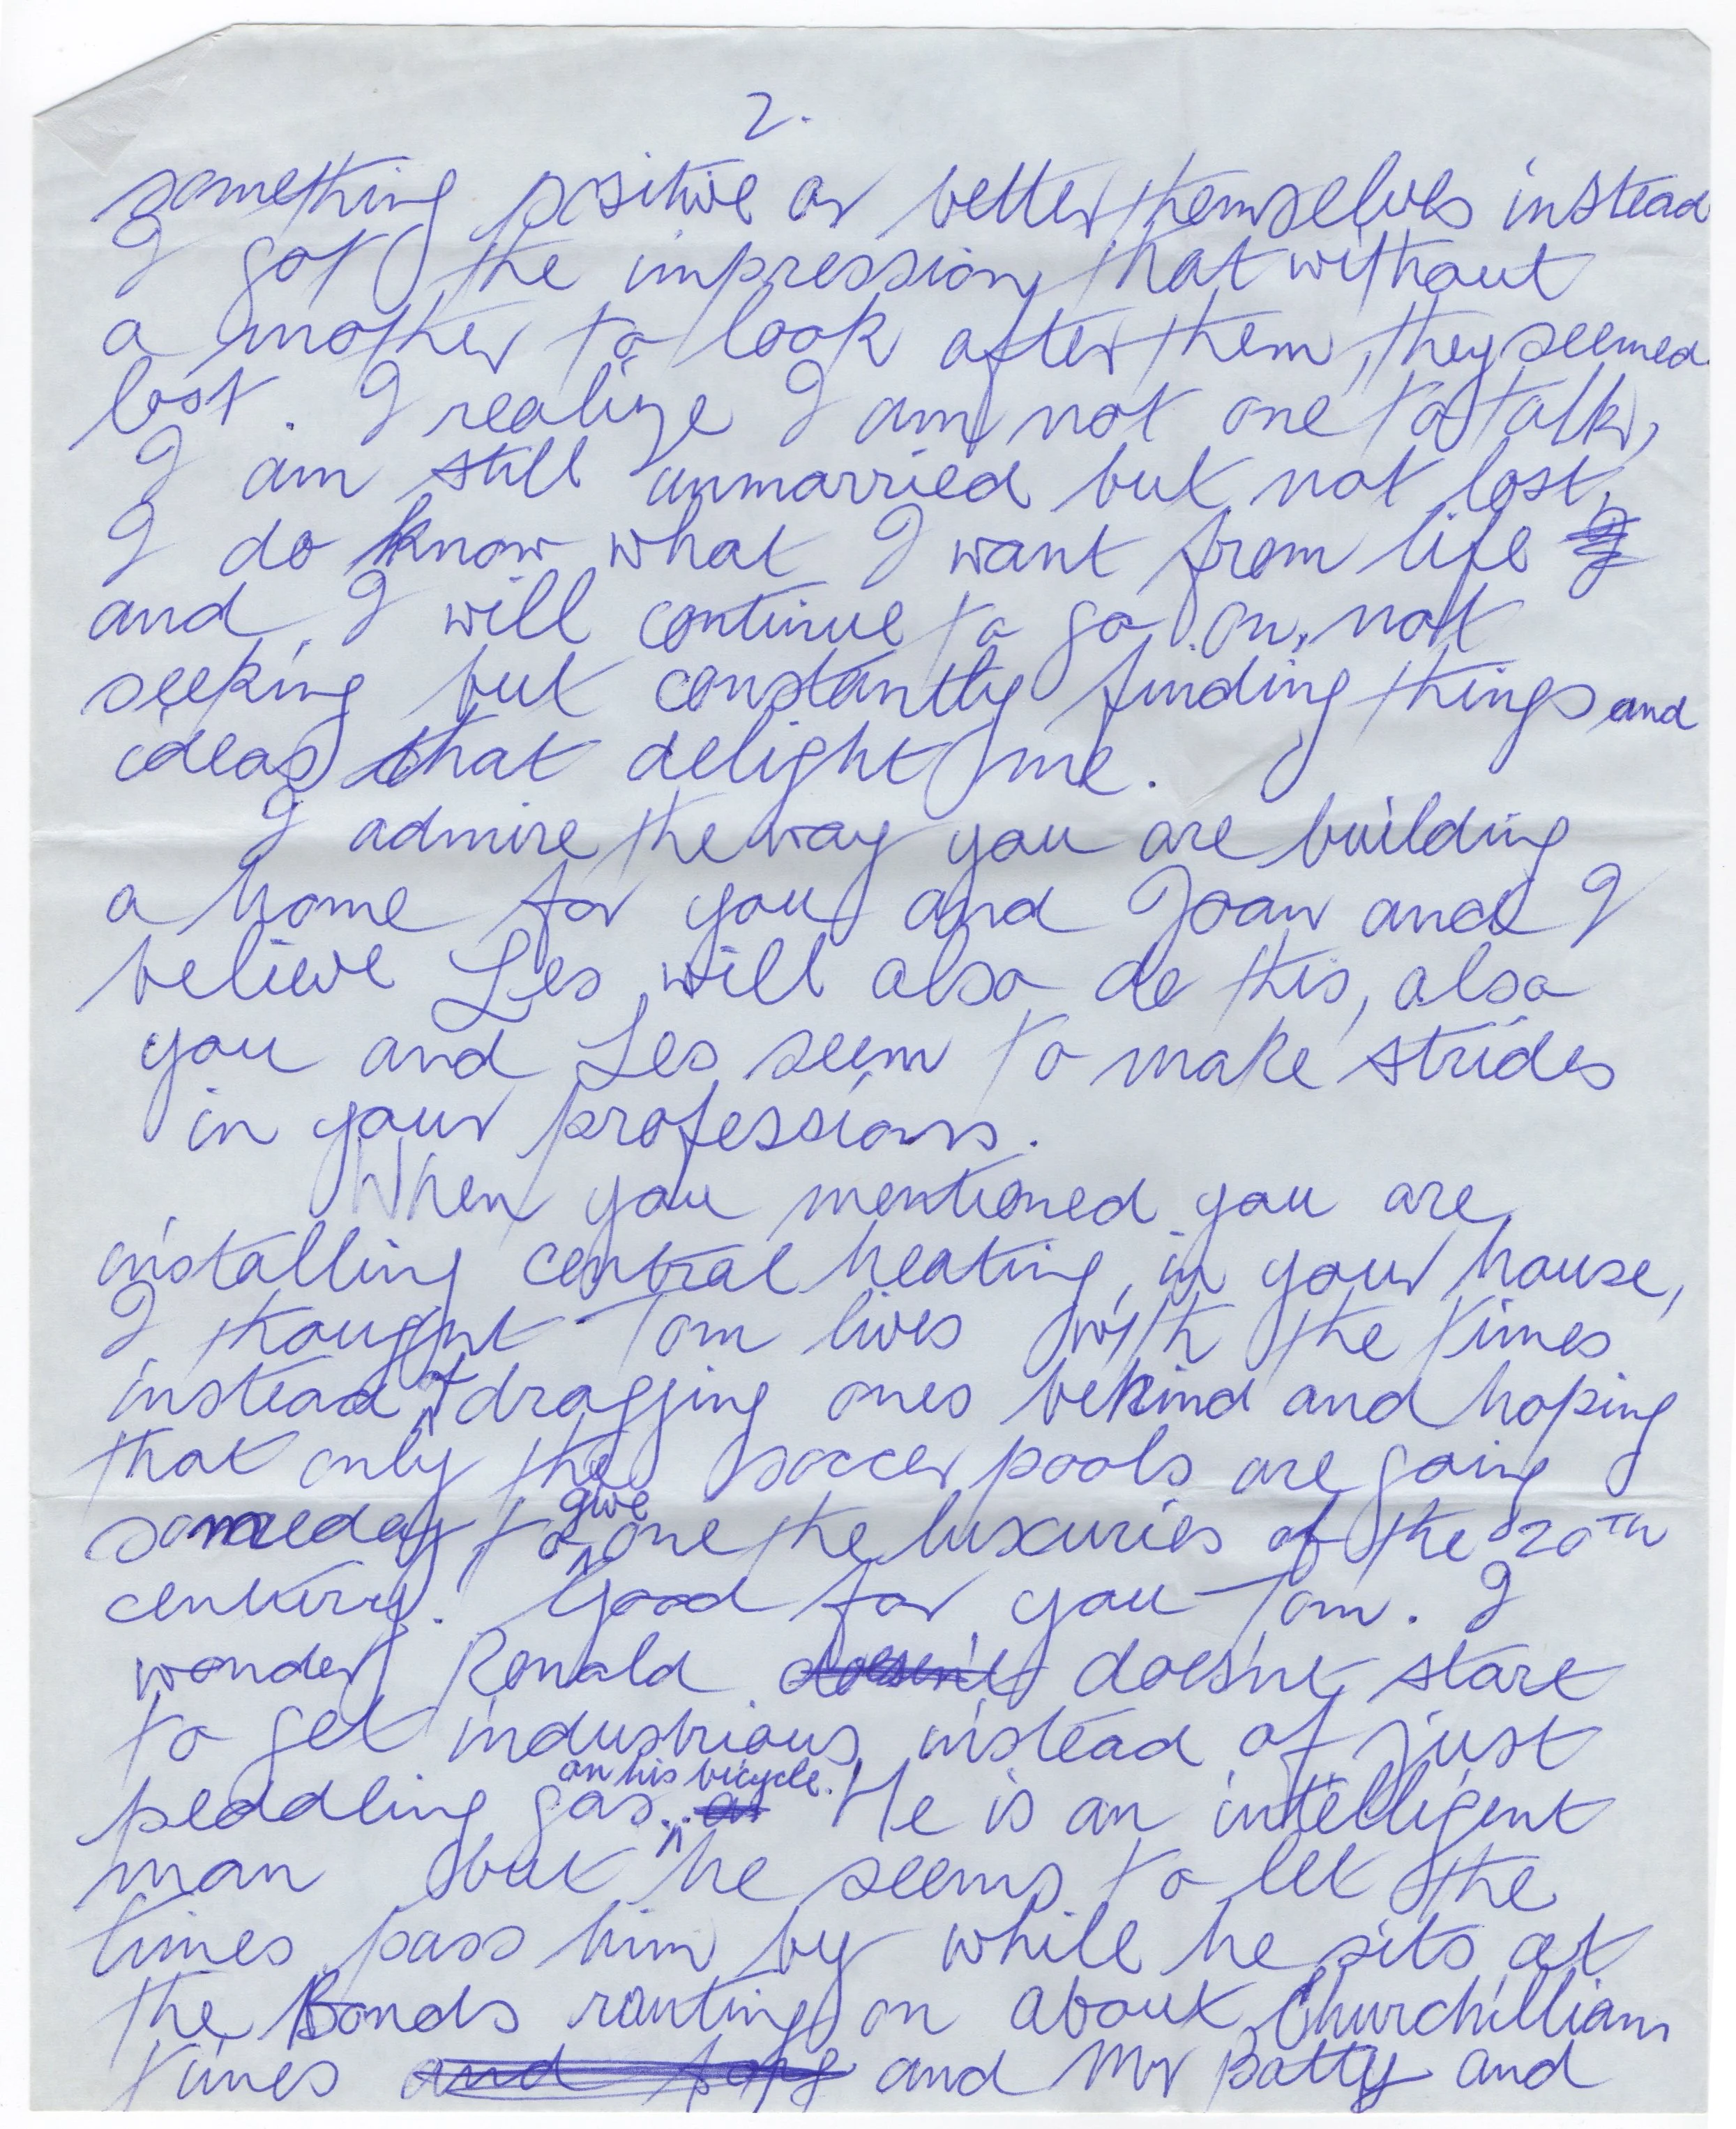 2.
something positive or better themselves instead
I got the impression that without
a mother to look after them, they seemed
lost. I realize I am not one to talk,
I am still unmarried but not lost,
I do know what I want from life
and I will continue to go on, not
seeking but constantly finding things and
ideas that delight me.
I admire the way you are building
a home for you and Joan and I
believe Les will also do this, also
you and Les seem to make strides
in your professions.
When you mentioned you are
installing central heating, in your house,
I thought Tom lives with the times
instead of dragging ones behind and hoping
that only the soccer pools are going
someday to give one the luxuries of the 20TH
century. Good for you Tom. I
wonder Ronald doesn't doesn't start
to get industrious instead of just
peddling gas on his bicycle. He is an intelligent
man but he seems to let the
times pass him by while he sits at
the Bonds ranting on about Churchillian
times and and Mr Batty and